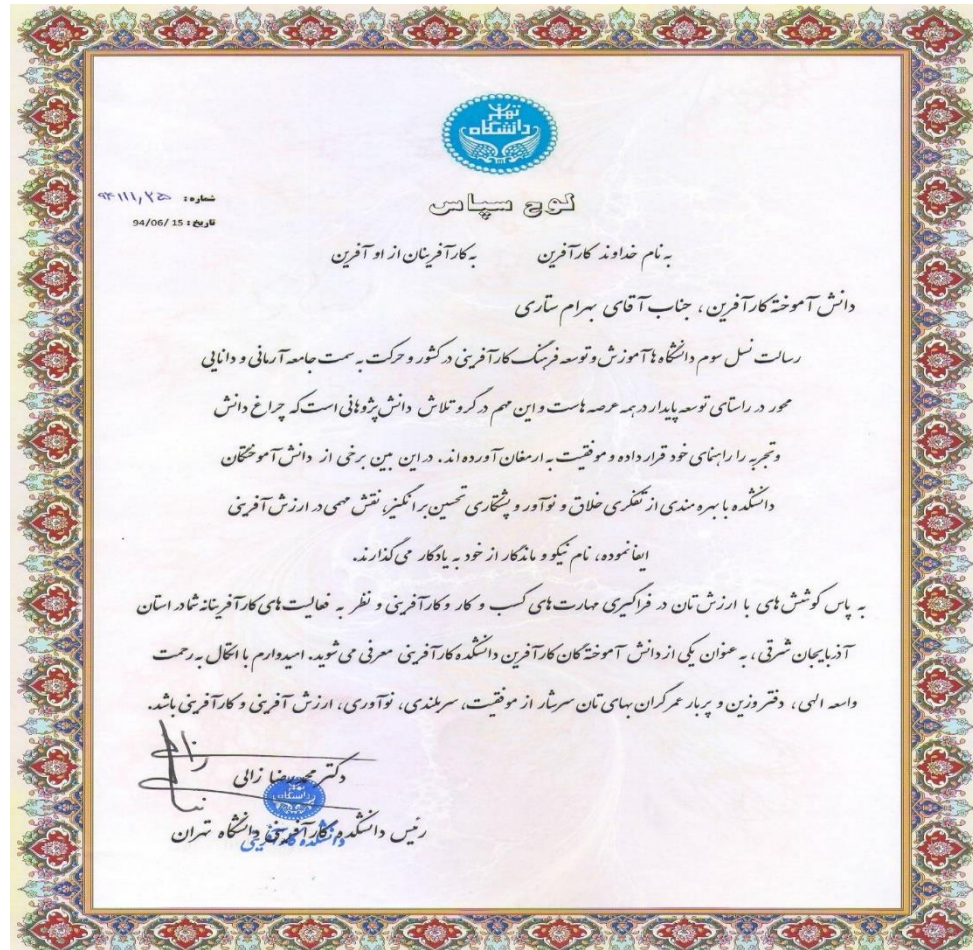 تهران
دانشگاه
لوح سپاس
شماره : ۹۴/۱۱۱,۲۵
تاریخ : 94/06/15
به نام خداوند کارآفرین به کارآفرینان از او آفرین
دانش آموخته کارآفرین ، جناب آقای بهرام ستاری
رسالت نسل سوم دانشگاه ها آموزش و توسعه فرهنگ کارآفرینی در کشور و حرکت به سمت جامعه آرمانی و دانایی
محور در راستای توسعه پایدار در همه عرصه هاست و این مهم در گرو تلاش دانش پژوهانی است که چراغ دانش
و تجربه را راهنمای خود قرار داده و موفقیت به ارمغان آورده اند. در این بین برخی از دانش آموختگان
دانشکده با بهره مندی از تفکری خلاق و نوآور و پشتکاری تحسین برانگیز، نقش مهمی در ارزش آفرینی
ایفا نموده، نام نیکو و ماندگار از خود به یادگار می گذارند.
به پاس کوشش های با ارزش تان در فراگیری مهارت های کسب و کار و کارآفرینی و نظر به فعالیت های کارآفرینانه شما در استان
آذربایجان شرقی ، به عنوان یکی از دانش آموخته گان کارآفرین دانشکده کارآفرینی معرفی می شوید. امیدوارم با اتکال به رحمت
واسعه الهی ، دفتر وزین و پربار عمر گران بهای تان سرشار از موفقیت، سربلندی، نوآوری، ارزش آفرینی و کارآفرینی باشد.
دکتر محمدرضا زالی
رئیس دانشکده کارآفرینی دانشگاه تهران
دانشکده کارآفرینی